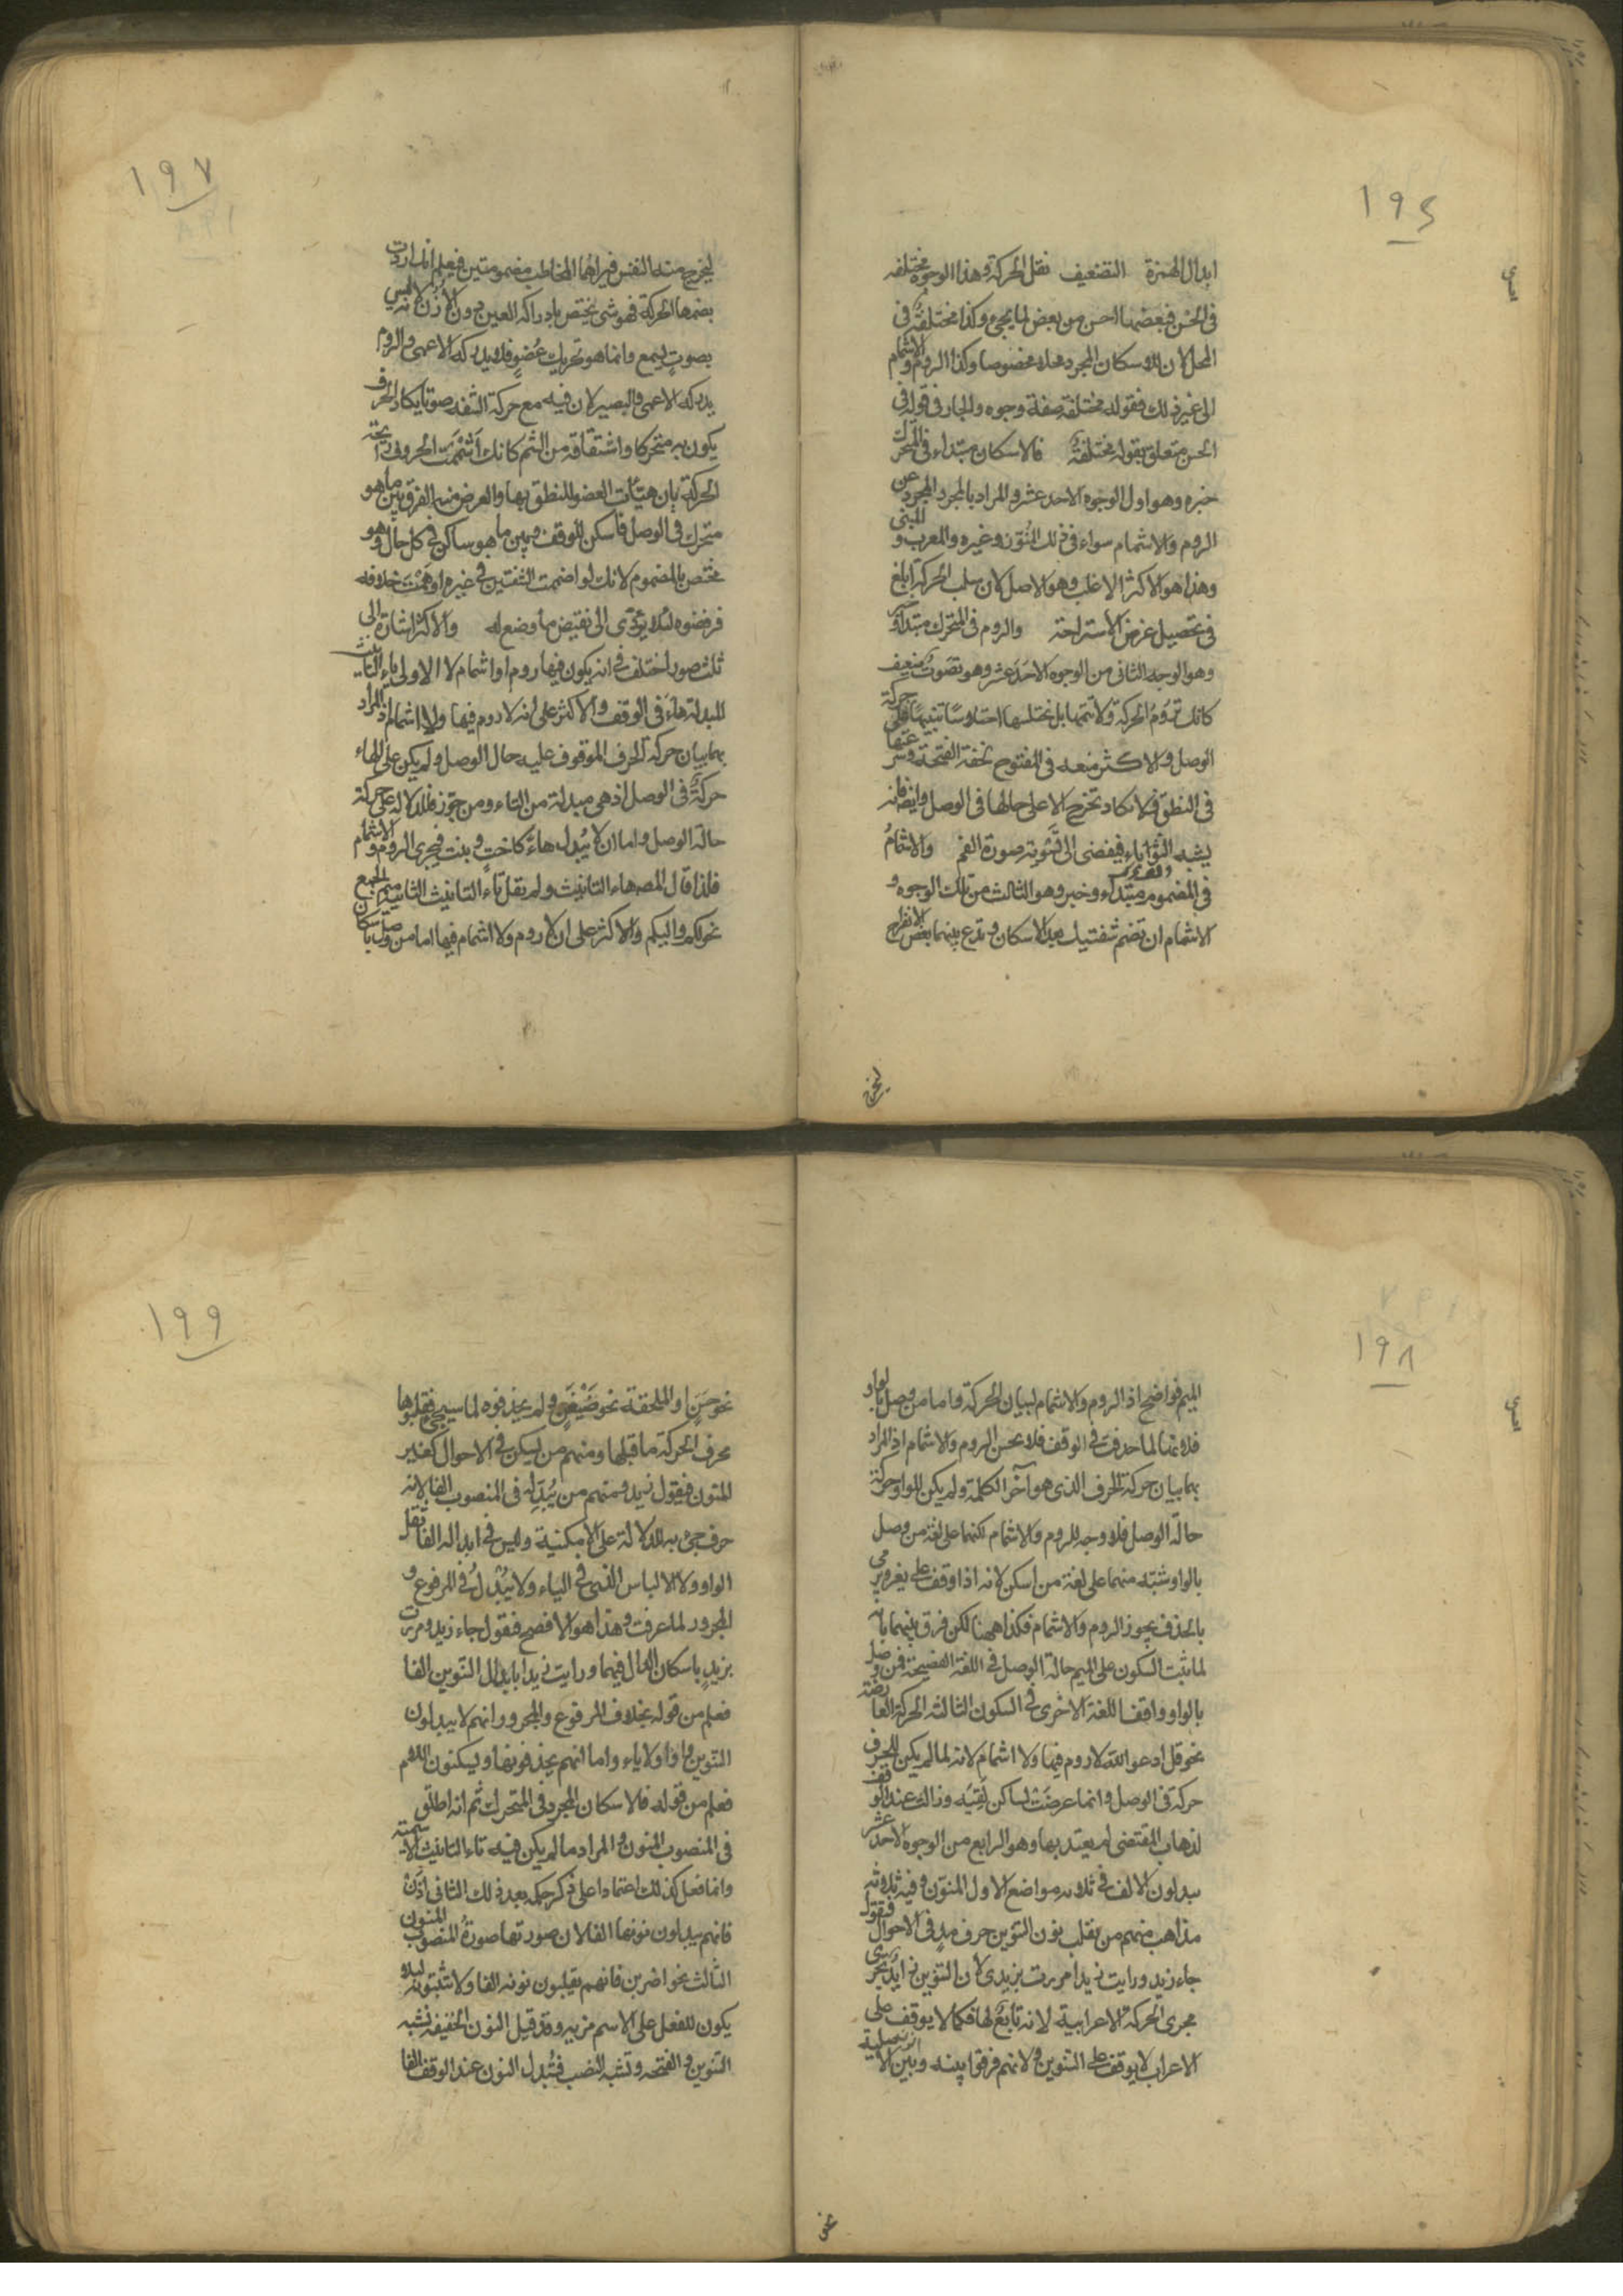 ١٩٤
ابدال الهمزة التضعيف نقل الحركة وهذا الوجوه مختلفة
فى الحسن فبعضها احسن من بعض لما يجئ وكذا مختلفة فى
المحل لان للاسكان المجرد محلا مخصوصا وكذا الروم والاشمام
الى غير ذلك فقوله مختلفة صفة وجوه والجار فى قوله فى
الحسن متعلق بقوله مختلفة فالاسكان مبتداء فى المتحرك
خبره وهو اول الوجوه الاحد عشر والمراد بالمجرد المجرد عن
الروم والاشمام سواء فى ذلك المُنَوّن وغيره والمعرب و المبنى
وهذا هو الاكثر الاغلب وهو الاصل لان سلب الحركة ابلغ
فى تحصيل غرض الاستراحة والروم فى المتحرك مبتدا وخبر
وهو الوجه الثانى من الوجوه الاحد عشر وهو تصويت ضعيف
كانك تَرُومُ الحركة ولا تتمها بل تختلسها اختلاسًا تنبيهًا على حركة
الوصل والاكثر منعه فى المفتوح لخفة الفتحة وسرعتها
فى النطق فلا تكاد تخرج الا على حالها فى الوصل وايضا فانه
يشبه الثؤاباء فيفضى الى تشويه صورة الفم والاشمامُ
فى المضموم مبتداء وخبر وهو الثالث من تلك الوجوه و
الاشمام ان تضم شفتيك بعد الاسكان وتدع بينهما بعض الانفراج
ليخرج
١٩٧
ليخرج منه النفس فيراهما المخاطب مضمومتين فيعلم انك اردت
بضمها الحركة فهو شئ يختص بادراكه العين دون الأُذُن لانه ليس
بصوت يسمع وانما هو تحريك عُضوٍ فلا يدركه الاعمى والروم
يدركه الاعمى والبصير لان فيه مع حركة الشفة صوتا يكاد الحرف
يكون به متحركا واشتقاقه من الشم كانك أَشْمَمْتَ الحرف رائحة
الحركة بان هيّأت العضو للنطق بها والغرض منه الفرق بين ما هو
متحرك فى الوصل فاسكن للوقف وبين ما هو ساكن فى كل حال وهو
مختص بالمضموم لانك لو اضممت الشفتين فى غيره اوهمت خلافه
فرفضوه لئلا يؤدّى الى نقيض ما وضع له والاكثر اشارة الى
ثلث صور اختلف فى انه يكون فيها روم او اشمام لا الاولى تاء التانيث
المبدلة هاءً فى الوقف والاكثر على انه لا روم فيها ولا اشمام اذ المراد
بهما بيان حركة الحرف الموقوف عليه حال الوصل ولم يكن على الهاء
حركةٌ فى الوصل اذ هى مبدلة من التاء ومن جوّز فللدلالة على حركة
حالة الوصل واما ان لا يُبدل هاءً كاخت وبنت فيجرى الروم والاشمام
فلذا قال المصـ هاء التانيث ولم يقل تاء التانيث الثانية ميم الجمع
نحو لكم واليكم والاكثر على ان لا روم ولا اشمام فيها اما من وصل باسكان
١٩٨
الميم فواضح اذ الروم والاشمام لبيان الحركة واما من وصل بالواو
فلانها لما حذفت فى الوقف فلا يحسن الروم والاشمام اذ المراد
بهما بيان حركة الحرف الذى هو آخر الكلمة ولم يكن للواو حركة
حالة الوصل فلا وجه للروم والاشمام لكنهما على لغة من وصل
بالواو شبّه منهما على لغة من اسكن لانه اذا وقف على يغزو يرمى
بالحذف يجوز الروم والاشمام فكذا ههنا لكن فرق بينهما بانه
لما ثبت السكون على الميم حالة الوصل فى اللغة الفصيحة فمن وصل
بالواو وافق اللغة الاخرى فى السكون الثالثة الحركة العارضة
نحو قل ادعوا الله لا روم فيها ولا اشمام لانه لما لم يكن للحرف
حركة فى الوصل وانما عرضَتْ لساكن لَقِيَه وذلك عند الوقف
لذهاب المقتضى لم يعتد بها وهو الرابع من الوجوه الاحد عشر
يبدلون الالف فى ثلاثه مواضع الاول المنوّن وفيه ثلاثة
مذاهب منهم من يقلب نون التنوين حرف مدٍ فى الاحوال فيقول
جاء زيدو ورايت زيدا مررت بزيدى لان التنوين زايد يجرى
مجرى الحركة الاعرابية لانه تابع لها فكما لا يوقف على
الاعراب لا يوقف على التنوين ولانهم فرقوا بينه وبين الاصلية
نحو
١٩٩
نحو حَسَنٍ او الملحقة نحو ضَيْفَنٍ ولم يحذفوه لما سيجئ فقلبوها
بحرف الحركة ما قبلها ومنهم من يسكن فى الاحوال كغير
المنون فيقول زيد ومنهم من يُبَدِله فى المنصوب الفا لانه
حرف جئ به للدلالة على الامكنية وليس فى ابداله الفا ثقل
الواو ولا الالباس الذى فى الياء ولا يُبْدلُ فى المرفوع و
المجرور لما عرفت وهذا هو الافصح فيقول جاء زيد ومررت
بزيدٍ باسكان الدال فيهما ورايت زيدا بابدال التنوين الفا
فعلم من قوله بخلاف المرفوع والمجرور وانهم لا يبدلون
التنوين واوا ولا ياء واما انهم يحذفونها ويسكنون اللام
فعلم من قوله فالاسكان المجرد فى المتحرك ثم انه اطلق
فى المنصوب المنون والمراد ما لم يكن فيه تاء التانيث الاسمية
وانما فعل كذلك اعتمادا على ذكر حكمه بعد ذلك الثانى اذَنْ
فانهم يبدلون نونها الفا لان صورتها صورةُ المنصوب المنون
الثالث نحو اضربن فانهم يقلبون نونه الفا ولا يثبتونه لئلا
يكون للفعل على الاسم مزية وقد قيل النون الخفيفة تشبه
التنوين والفتحة وتشبه النصب فتُبدل النون عند الوقف الفا